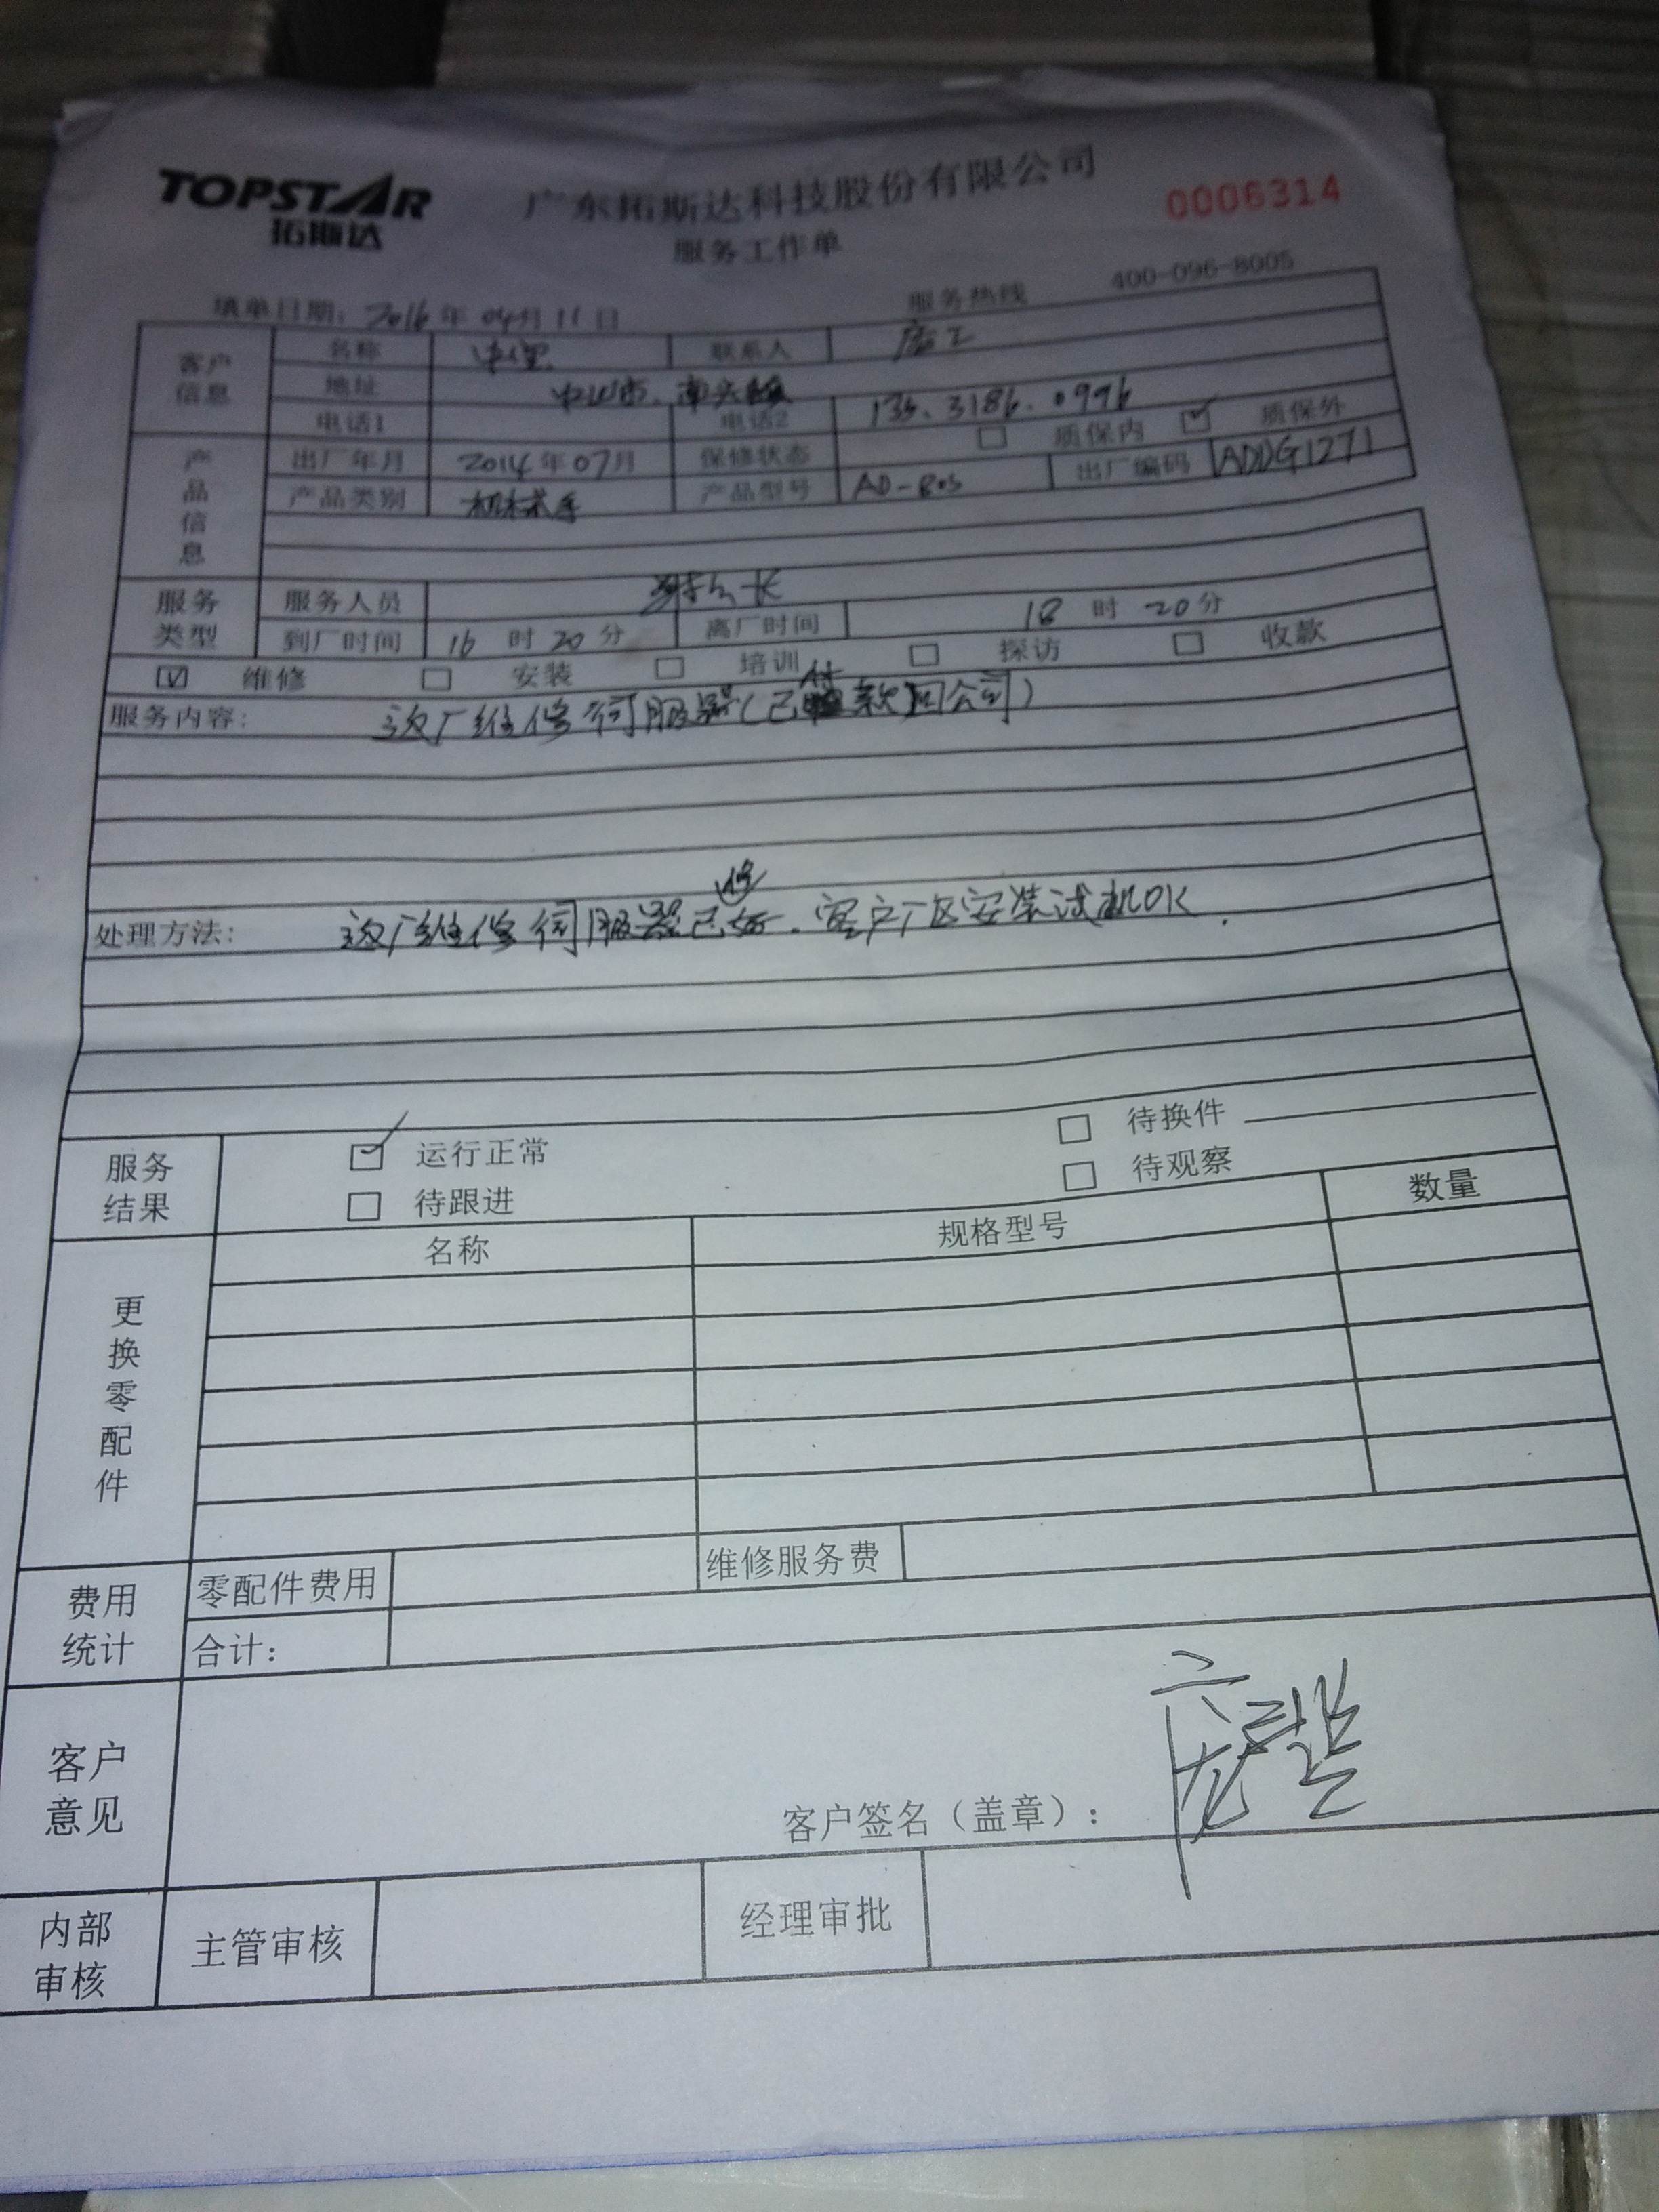 TOPSTAR
拓斯达
广东拓斯达科技股份有限公司
0006314
服务工作单
填单日期: 2016年04月11日 服务热线 400-096-8005
客户信息
名称 联系人
地址 中山市.南头镇
电话1 电话2 135.3186.0996
产品信息
出厂年月 2014年07月 保修状态 质保内 质保外
产品类别 机械手 产品型号 AD-803 出厂编码 ADDG1271
服务类型
服务人员
到厂时间 16时20分 离厂时间 18时20分
维修 安装 培训 探访 收款
服务内容: 返厂维修伺服器(已付款回公司)
处理方法: 返厂维修伺服器已修好.客户厂区安装试机OK.
服务结果
运行正常 待换件
待跟进 待观察
更换零配件
名称 规格型号 数量
费用统计
零配件费用 维修服务费
合计:
客户意见
客户签名(盖章):
内部审核
主管审核 经理审批